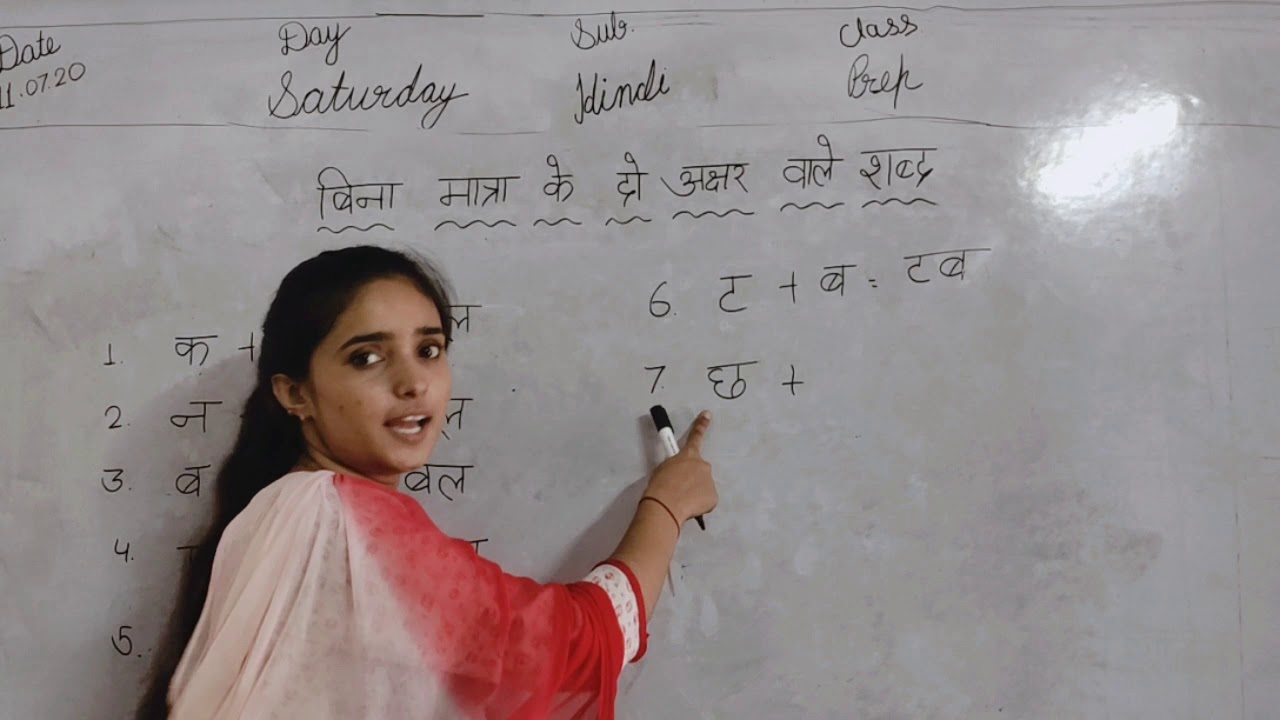 Date Day Sub. Class
11.07.20 Saturday Hindi Prep
बिना मात्रा के दो अक्षर वाले शब्द
1. क +
2. न
3. ब बल
4.
5.
6. ट + ब = टब
7. छ +